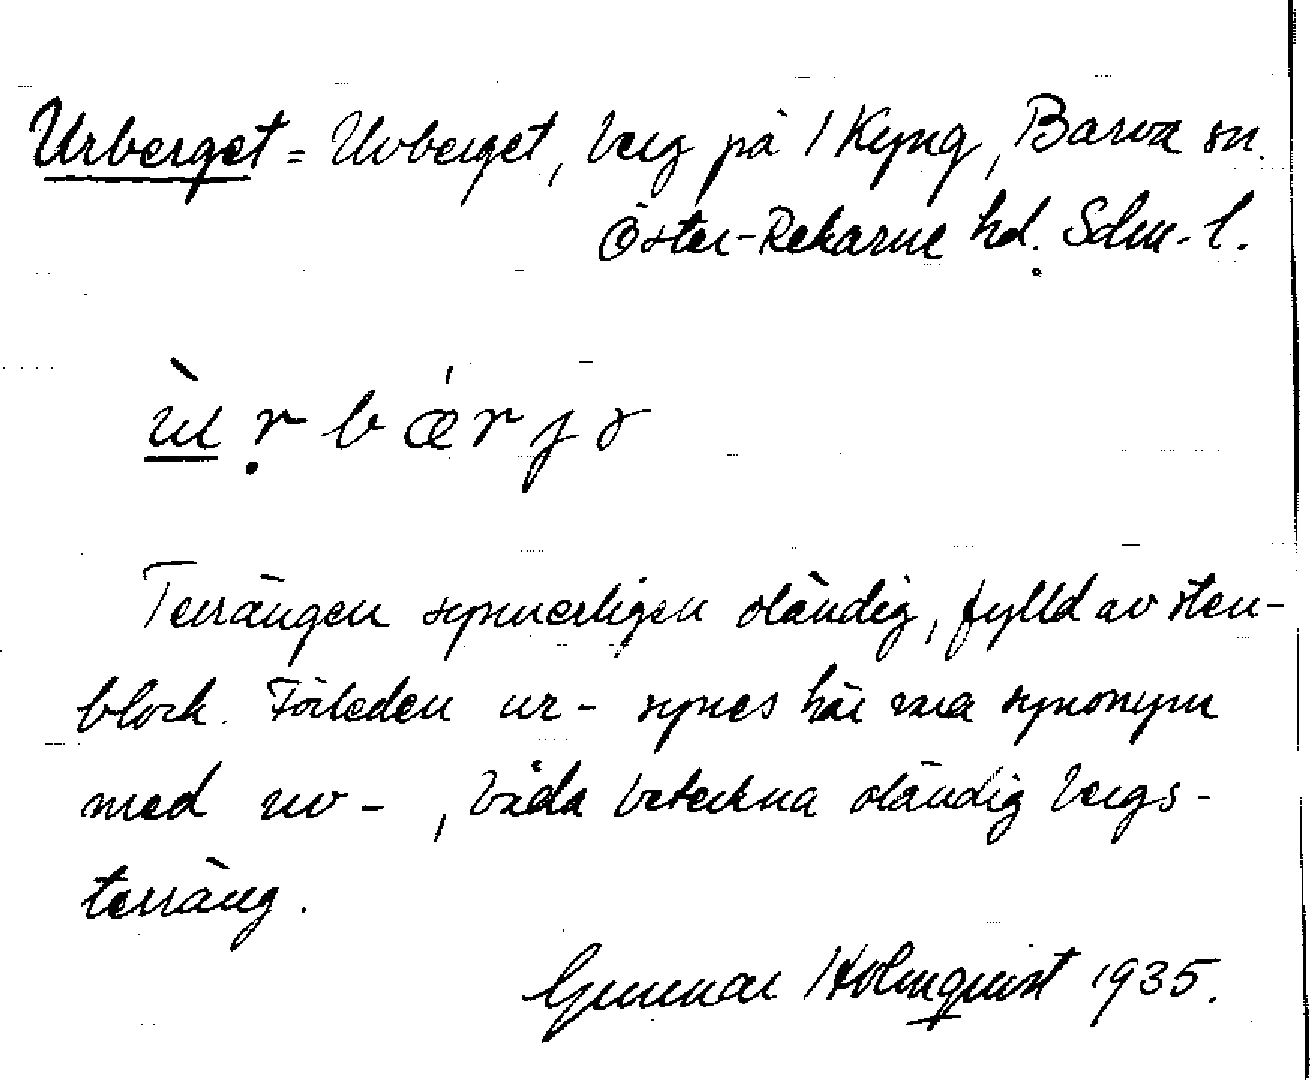 Urberget = Uvberget, berg på /Kyng, Barva sn.
Öster-Rekarne hd. Sdm. l.
ùṛbærjə
Terrängen synnerligen oländig, fylld av sten-
block. Förleden ur- synes här vara synonym
med uv-, båda beteckna oländig bergs-
terräng.
Gunnar Holmquist 1935.